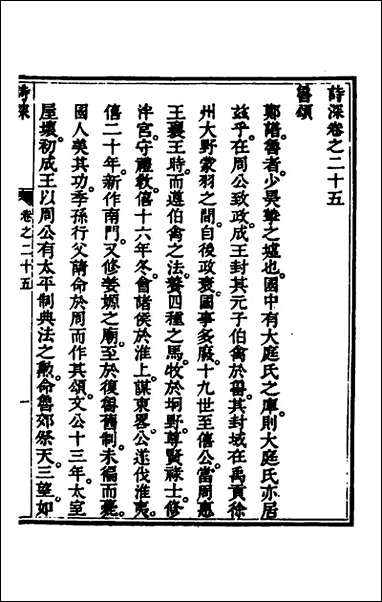 詩深卷之二十五
魯頌
鄭譜魯者少昊摯之墟也國中有大庭氏之庫則大庭氏亦居
茲乎在周公致政成王封其元子伯禽於魯其封域在禹貢徐
州大野蒙羽之間自後政衰國事多廢十九世至僖公當周惠
王襄王時而遵伯禽之法養四種之馬牧於坰野尊賢祿士修
泮宮守禮敎僖十六年冬會諸侯於淮上謀東畧公遂伐淮夷
僖二十年新作南門又修姜嫄之廟至於復魯舊制未徧而薨
國人美其功季孫行父請命於周而作其頌文公十三年太室
屋壞初成王以周公有太平制典法之勲命魯郊祭天三望如
詩深
卷之二十五
一